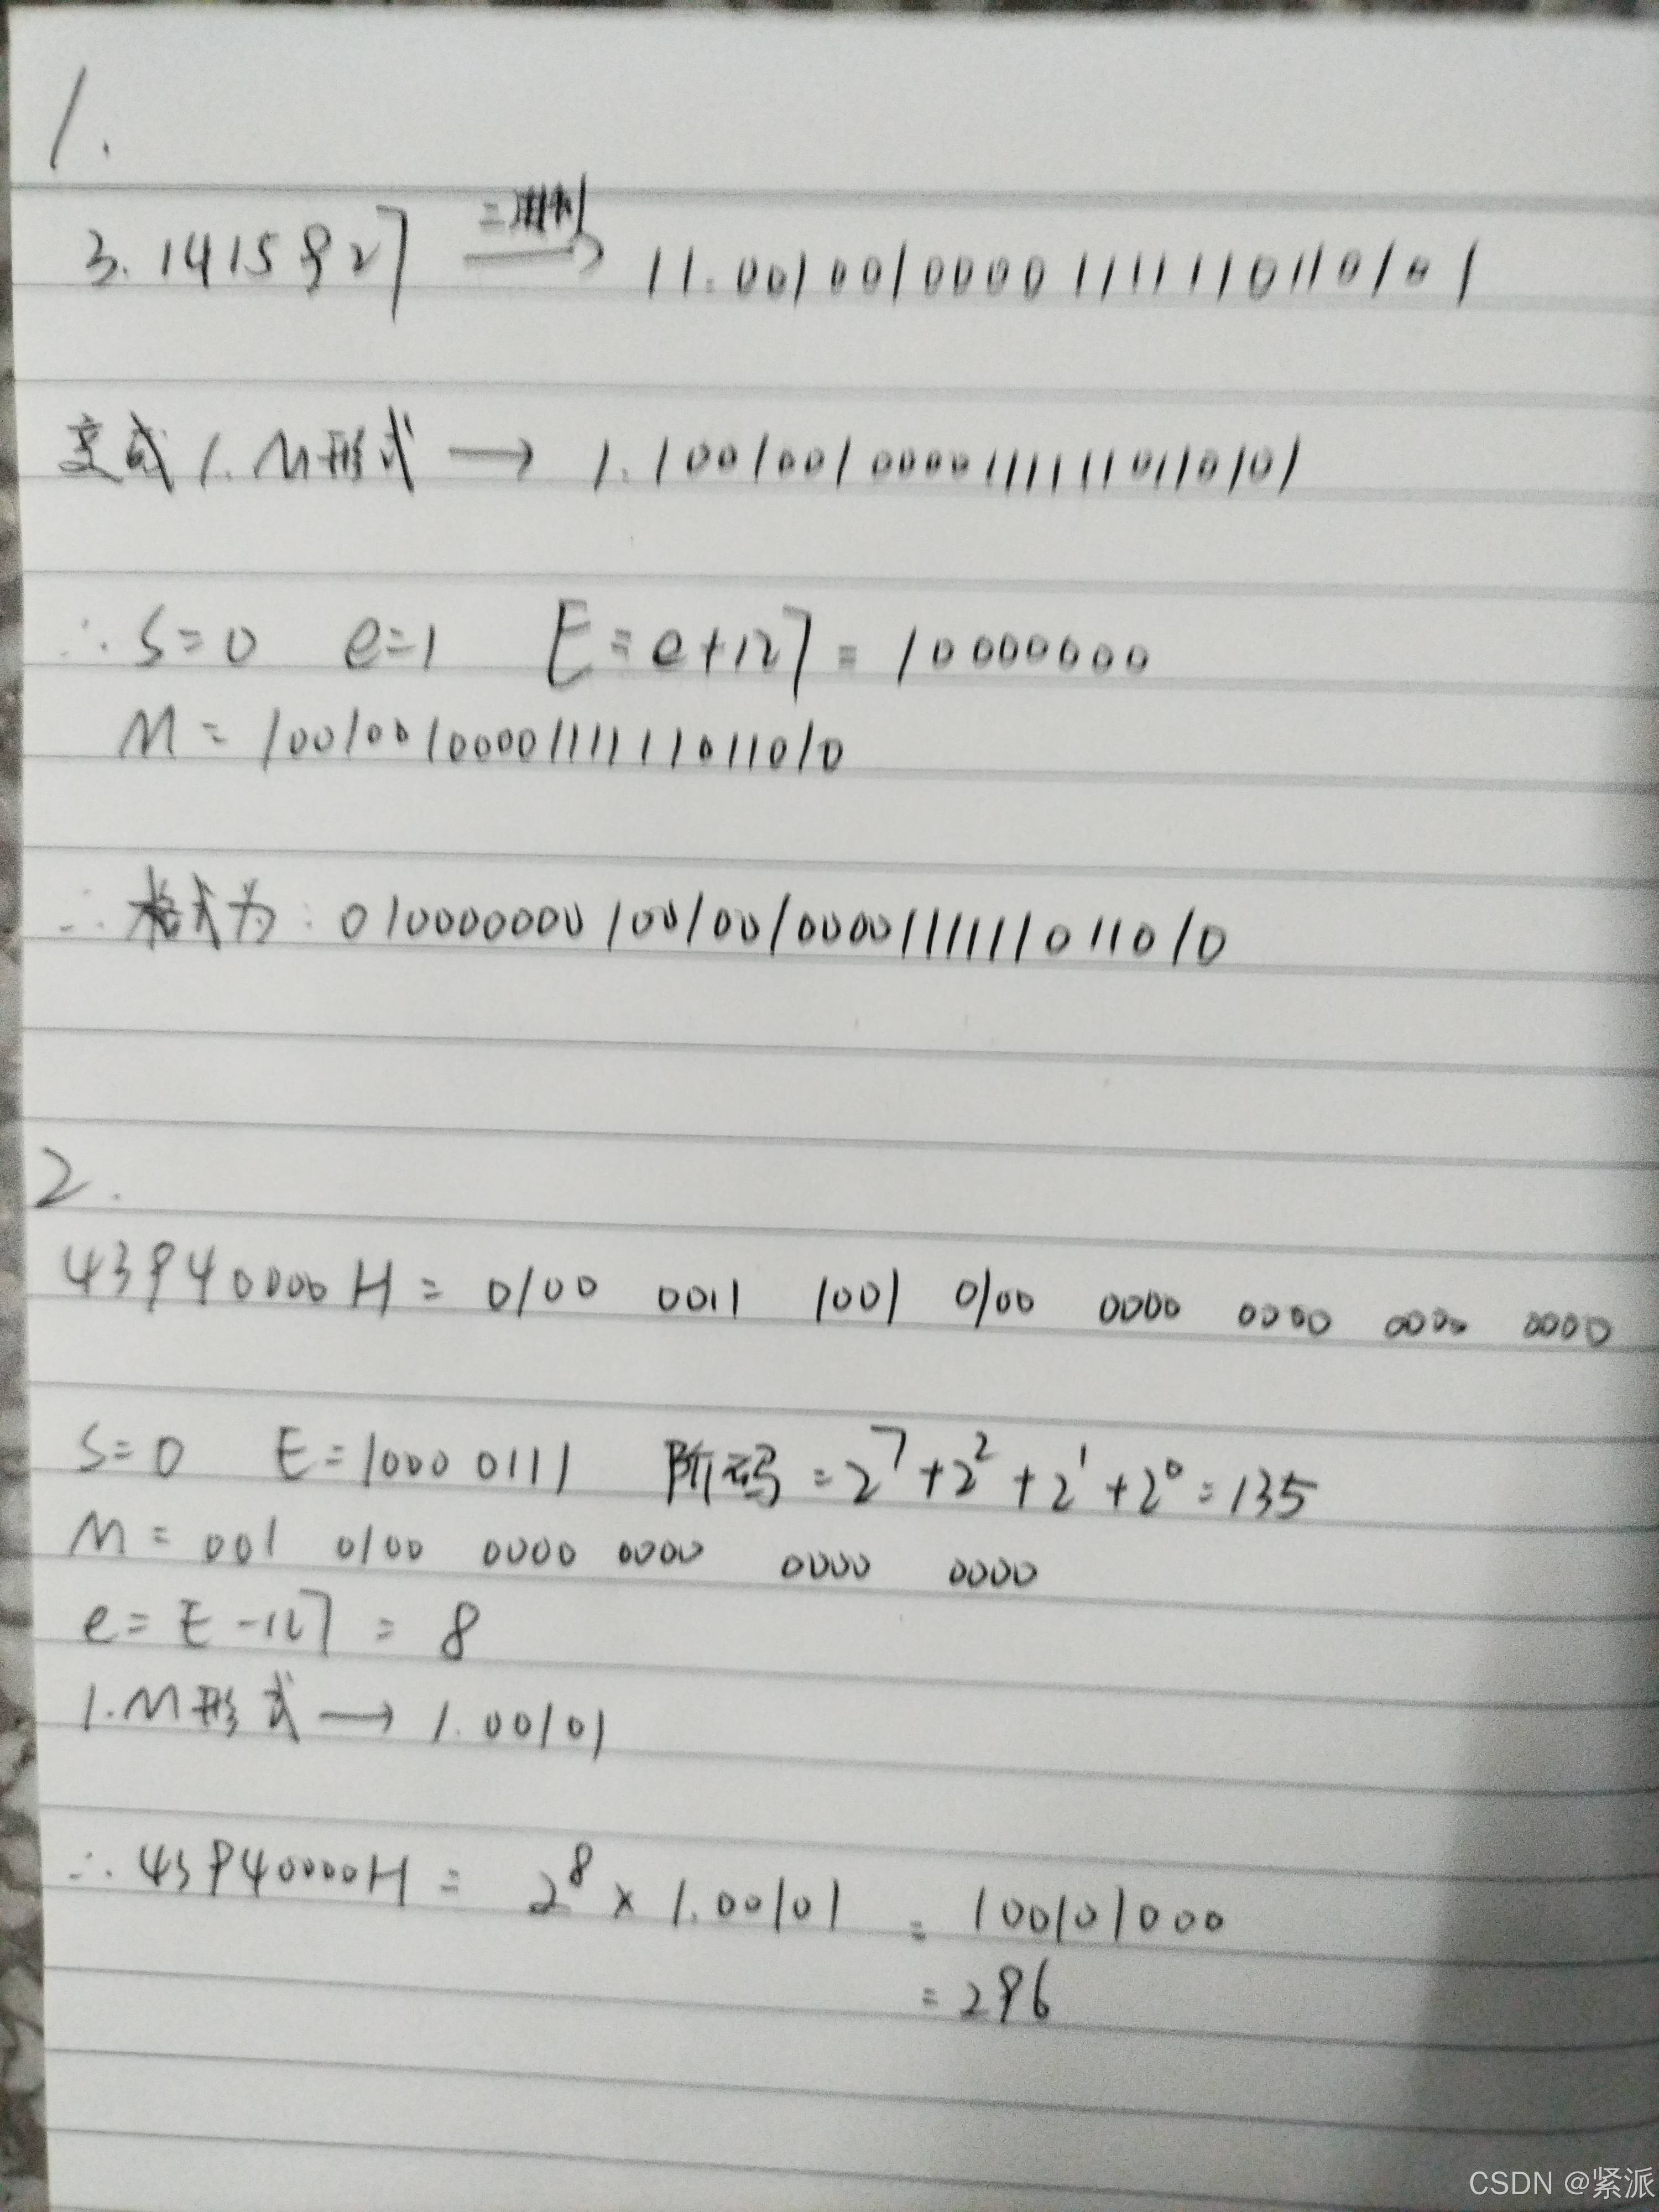 1.
3.1415927 二进制→ 11.0010010000111111011010101
变成1.M形式 → 1.10010010000111111011010101
∴ S=0 e=1 E=e+127=10000000
M=10010010000111111011010
∴ 格式为: 0 10000000 10010010000111111011010
2.
43940000H = 0100 0011 1001 0100 0000 0000 0000 0000
S=0 E=1000 0111 阶码=2^7+2^2+2^1+2^0=135
M=001 0100 0000 0000 0000 0000
e=E-127=8
1.M形式 → 1.00101
∴ 43940000H = 2^8 × 1.00101 = 100101000
=296
CSDN @紧派